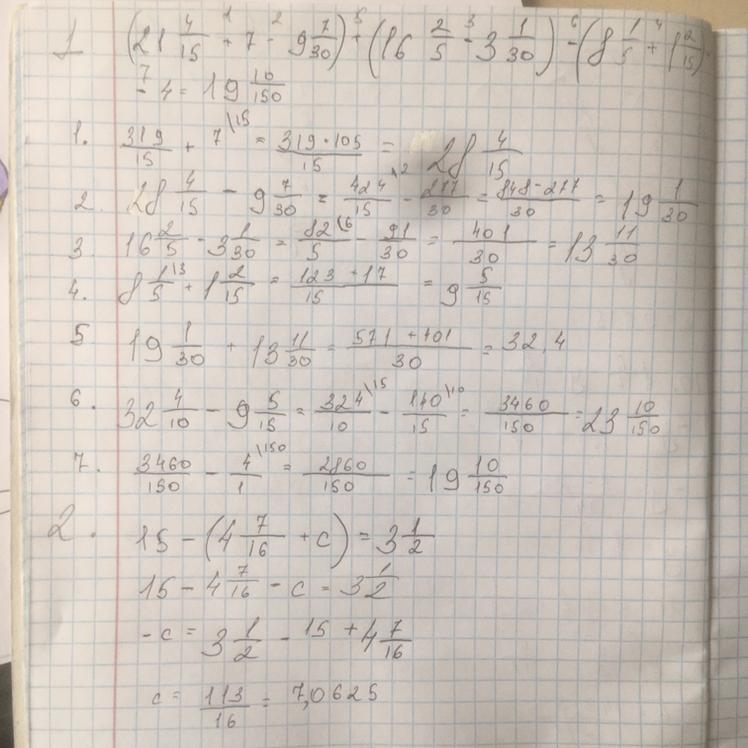 1 (21 4/15 + 7 - 9 7/30) + (16 2/5 - 3 1/30) - (8 1/5 + 1 2/15)
- 4 = 19 10/150
1. 319/15 + 7\15 = 319·105/15 = 28 4/15
2. 28 4/15 - 9 7/30 = 424\2/15 - 277/30 = 848-277/30 = 19 1/30
3. 16 2/5 - 3 1/30 = 82\6/5 - 91/30 = 401/30 = 13 11/30
4. 8 1\3/5 + 1 2/15 = 123+17/15 = 9 5/15
5 19 1/30 + 13 11/30 = 571+401/30 = 32,4
6. 32 4/10 - 9 5/15 = 324\15/10 - 140\10/15 = 3460/150 = 23 10/150
7. 3460/150 - 4\150/1 = 2860/150 = 19 10/150
2. 15 - (4 7/16 + c) = 3 1/2
15 - 4 7/16 - c = 3 1/2
-c = 3 1/2 - 15 + 4 7/16
c = 113/16 = 7,0625